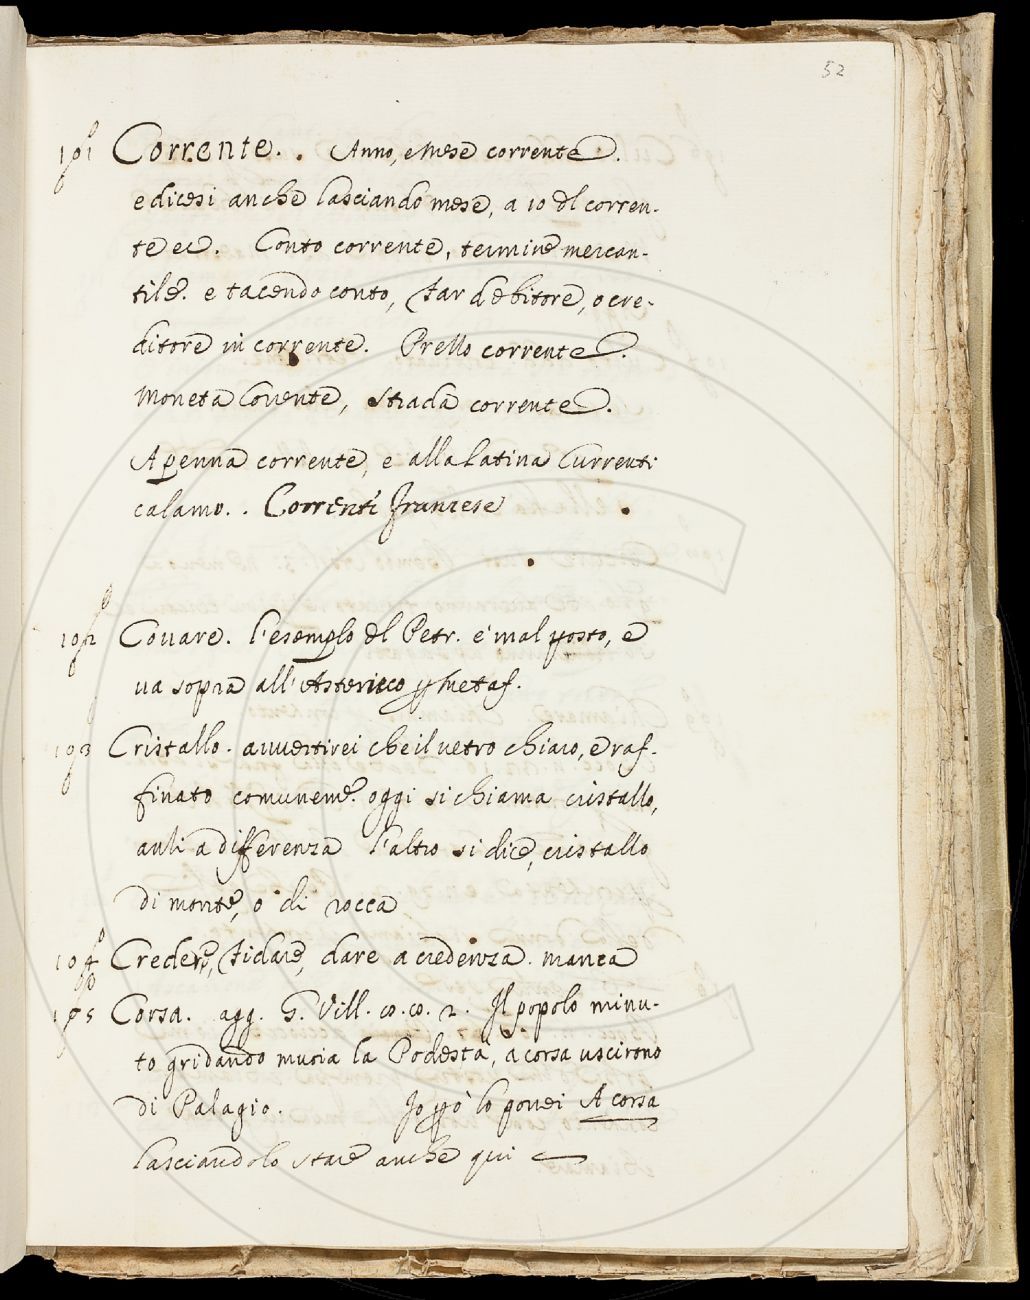 52
101 Corrente. . Anno, e Mese corrente.
e dicesi anche lasciando mese, a 10 dl corren-
te ec. Conto corrente, termine mercan-
tile. e tacendo conto, Far debitore, o cre-
ditore in corrente. Prello corrente.
Moneta Corrente, strada corrente.
A penna corrente, e alla latina Currenti
calamo. . Correnti Franzese
102 Covare. l'esemplo dl Petr. e' mal posto, e
va sopra all'Asterisco p Metaf.
103 Cristallo. avvertirei che il vetro chiaro, e raf-
finato comuneme. oggi si chiama cristallo,
anzi a differenza l'altro si dice, cristallo
di monte, o di rocca
104 Credere, Fidare, dare a credenza. manca
105 Corsa. agg. G. Vill. co. co. 2. Il popolo minu-
to gridando muoia la Podestà, a corsa uscirono
di Palagio. Io però lo porrei A corsa
lasciandolo stare anche qui